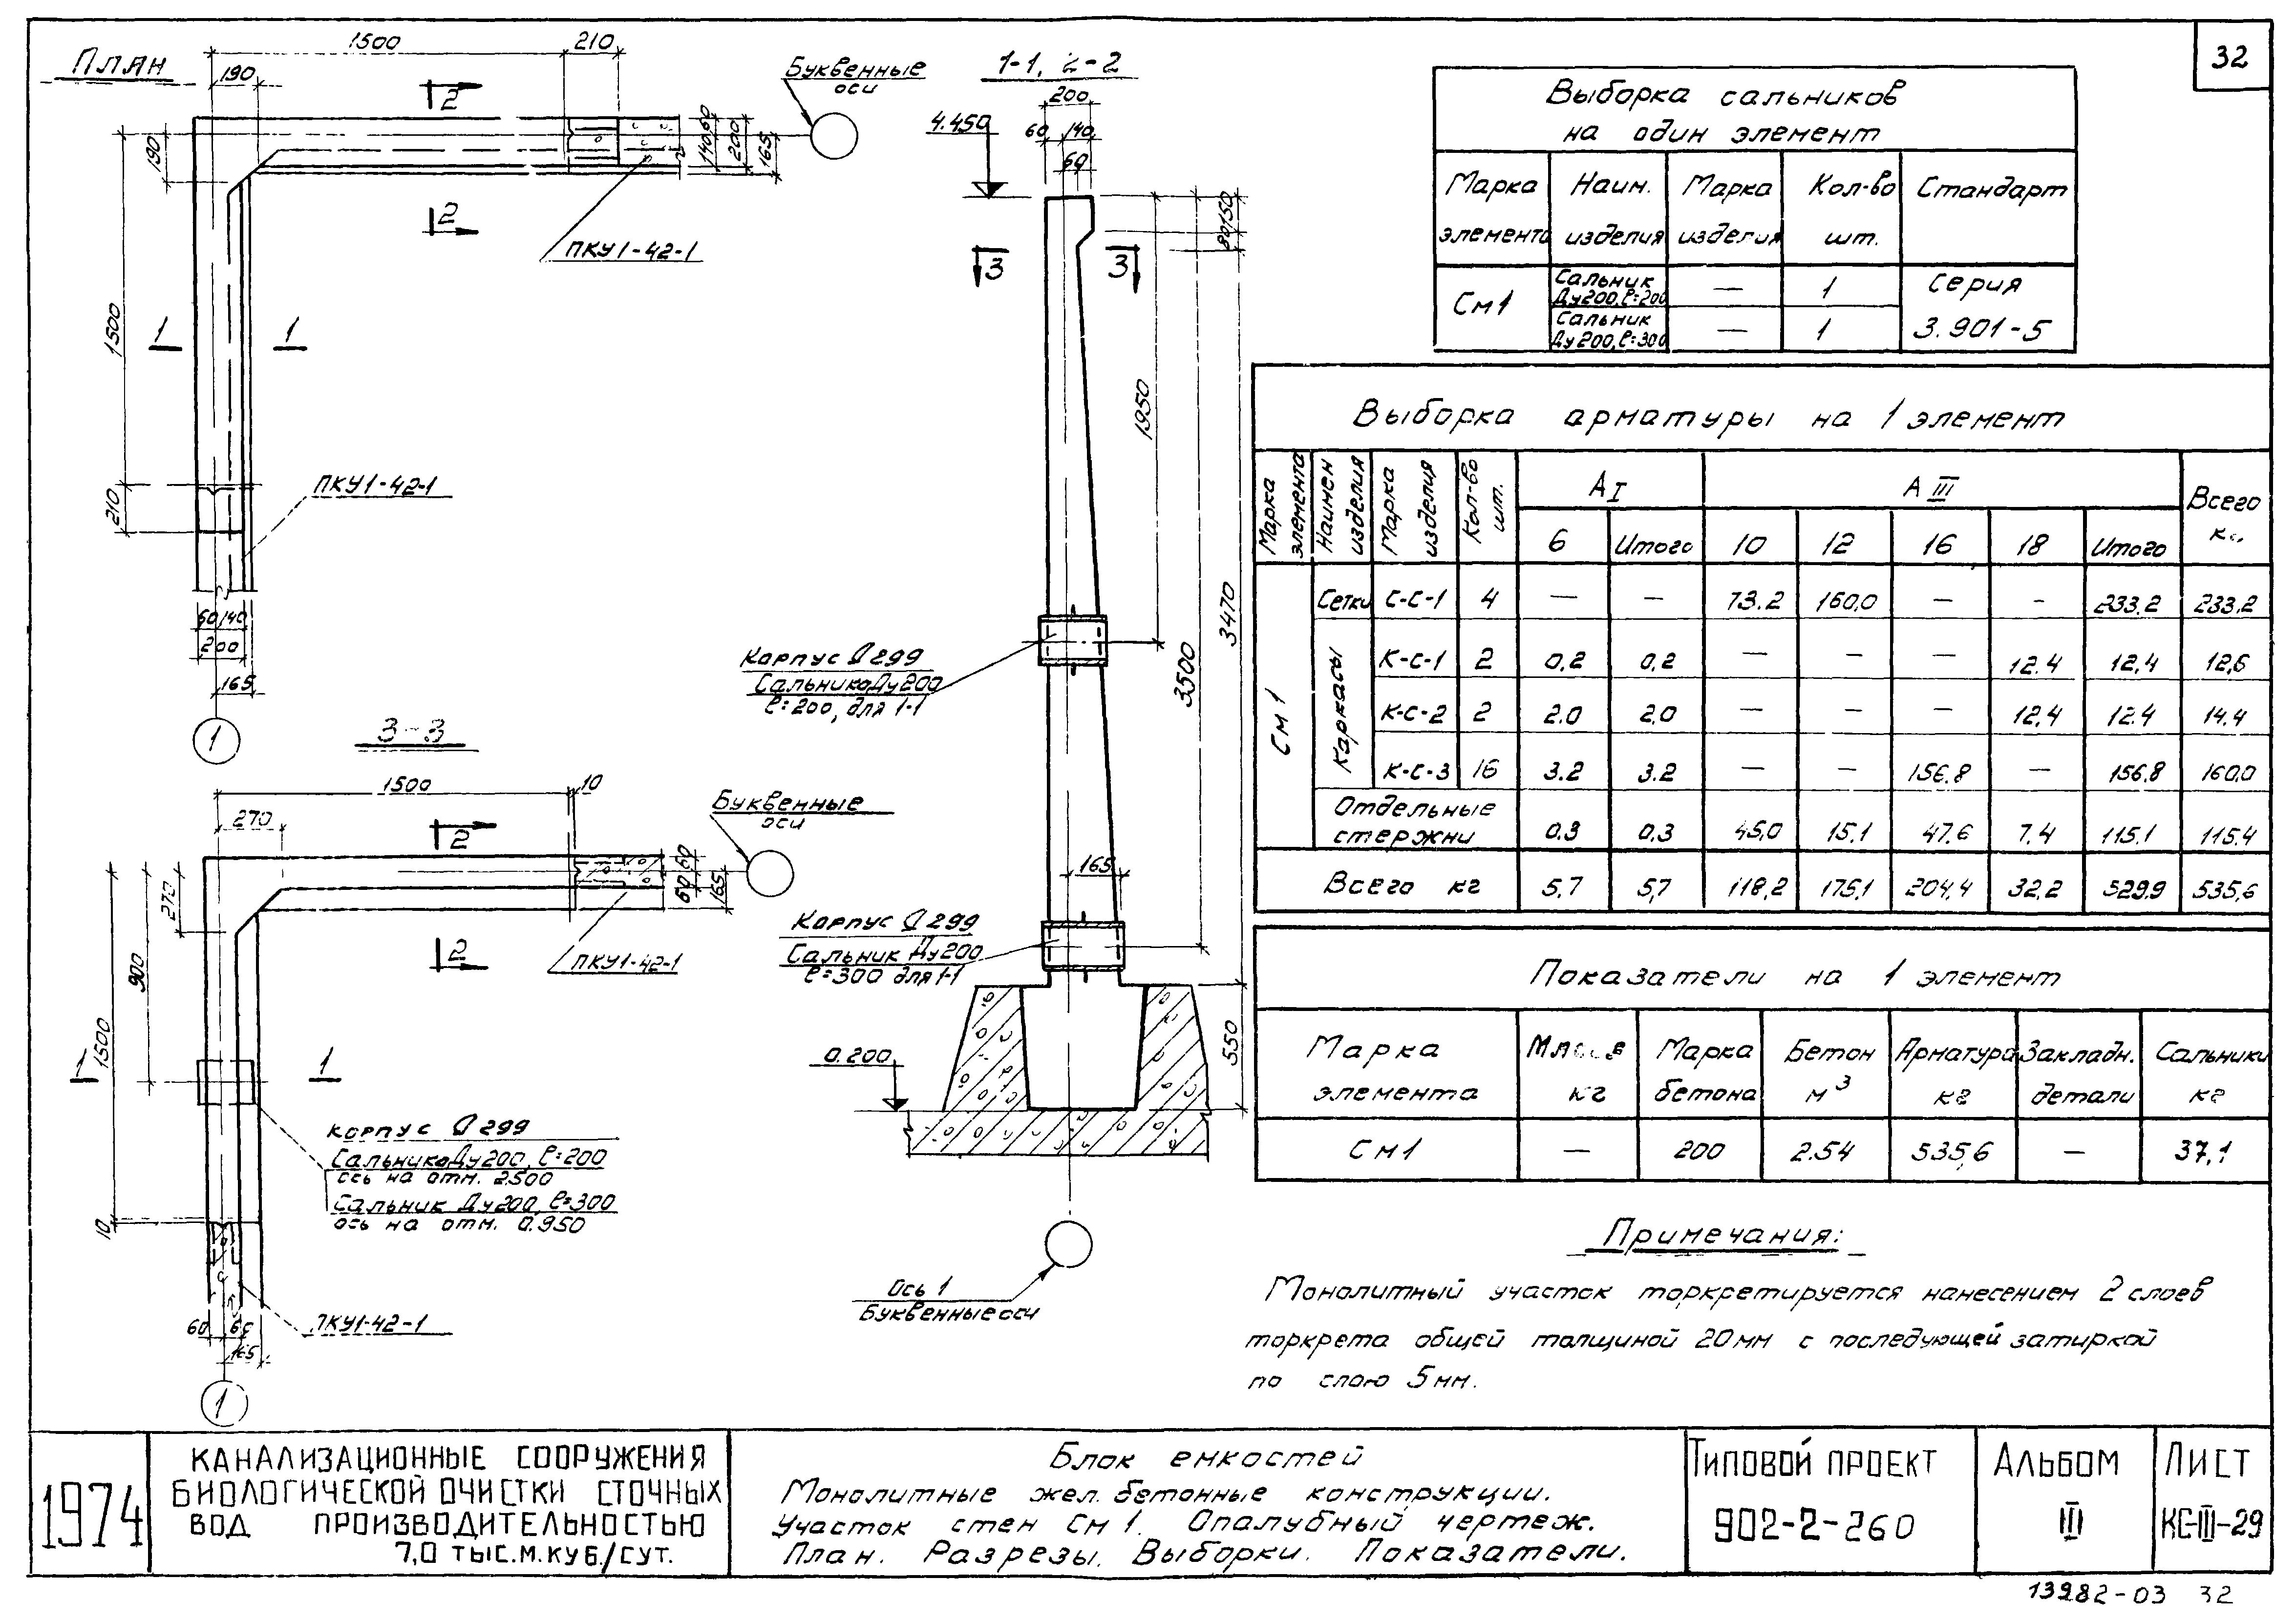 32
План
1500
210
190
2
Буквенные
оси
140 60
200
165
190
2
ПКУ1-42-1
1500
1 1
210
ПКУ1-42-1
60 140
200
165
1
1-1, 2-2
200
4.450
60 140
60
80 150
3 3
1950
3500
3470
Корпус D 299
Сальника Ду 200
ℓ=200, для 1-1
165
Корпус D 299
Сальник Ду200
ℓ=300 для 1-1
0.200
550
Ось 1
Буквенные оси
3-3
1500
10
270
2
Буквенные
оси
60
60
165
270
900
1500
2
ПКУ1-42-1
1 1
Корпус D 299
Сальника Ду 200, ℓ=200
ось на отм. 2.500
Сальник Ду200, ℓ=300
ось на отм. 0.950
10
ПКУ1-42-1
60
165
1
Выборка сальников
на один элемент
Марка элемента Наим. изделия Марка изделия Кол-во шт. Стандарт
См1 Сальник Ду200, ℓ=200 — 1 Серия
Сальник Ду200, ℓ=300 — 1 3.901-5
Выборка арматуры на 1 элемент
Марка элемента Наимен изделия Марка изделия Кол-во шт. АI АIII Всего кг
6 Итого 10 12 16 18 Итого
См1 Сетки С-С-1 4 — — 73.2 160,0 — — 233,2 233,2
Каркасы К-С-1 2 0,2 0,2 — — — 12.4 12,4 12,6
К-С-2 2 2.0 2.0 — — — 12,4 12.4 14.4
К-С-3 16 3.2 3.2 — — 156.8 — 156,8 160,0
Отдельные
стержни 0.3 0,3 45,0 15,1 47.6 7.4 115.1 115.4
Всего кг 5,7 5,7 118,2 175,1 204,4 32,2 529,9 535,6
Показатели на 1 элемент
Марка элемента Масса кг Марка бетона Бетон м³ Арматура кг Закладн. детали Сальники кг
См1 — 200 2.54 535,6 — 37,1
Примечания:
Монолитный участок торкретируется нанесением 2 слоев
торкрета общей толщиной 20мм с последующей затиркой
по слою 5мм.
1974
Канализационные сооружения
биологической очистки сточных
вод производительностью
7,0 тыс.м.куб./сут.
Блок емкостей
Монолитные жел. бетонные конструкции.
Участок стен См 1. Опалубный чертеж.
План. Разрезы. Выборки. Показатели.
Типовой проект
902-2-260
Альбом
III
Лист
КС-III-29
13982-03 32